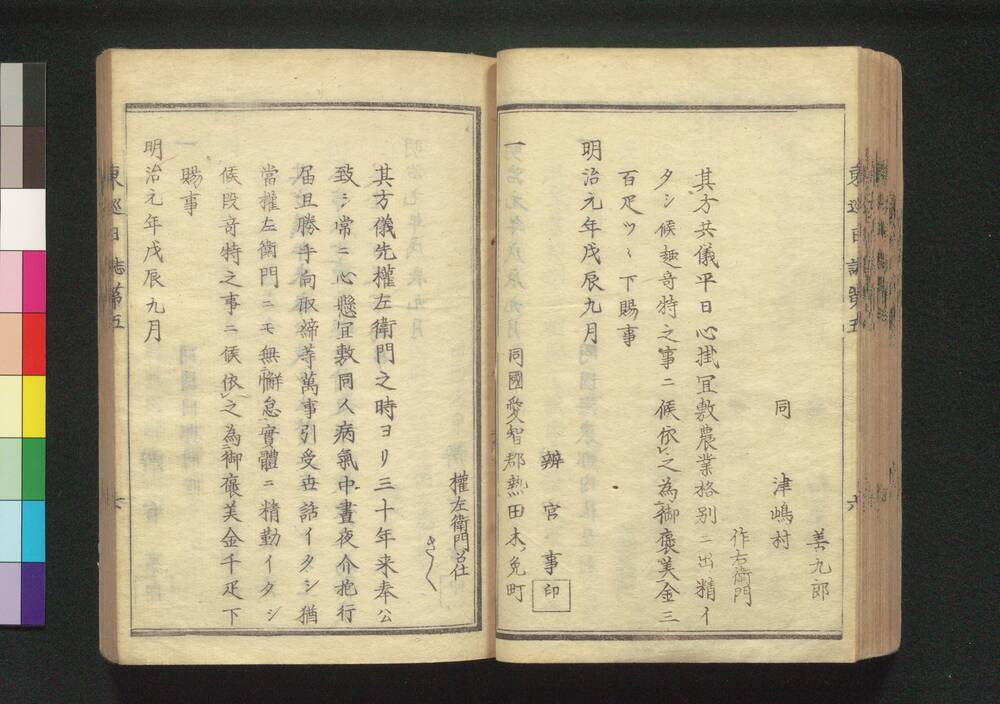 善九郎
同 津嶋村
作右衛門
其方共儀平日心掛冝敷農業格別ニ出精イ
タシ候趣竒特之事ニ候依之為御襃美金三
百疋ツヽ下賜事
明治元年戊辰九月
辨官事 印
一 同國愛智郡熱田木ノ免町
權左衛門召仕
きく
其方儀先權左衛門之時ヨリ三十年来奉公
致シ常ニ心懸冝敷同人病氣中晝夜介抱行
届且勝手向取締等萬事引受世話イタシ猶
當權左衛門ニモ無懈怠實體ニ精勤イタシ
候段竒特之事ニ候依之為御襃美金千疋下
賜事
明治元年戊辰九月
東巡日誌第五